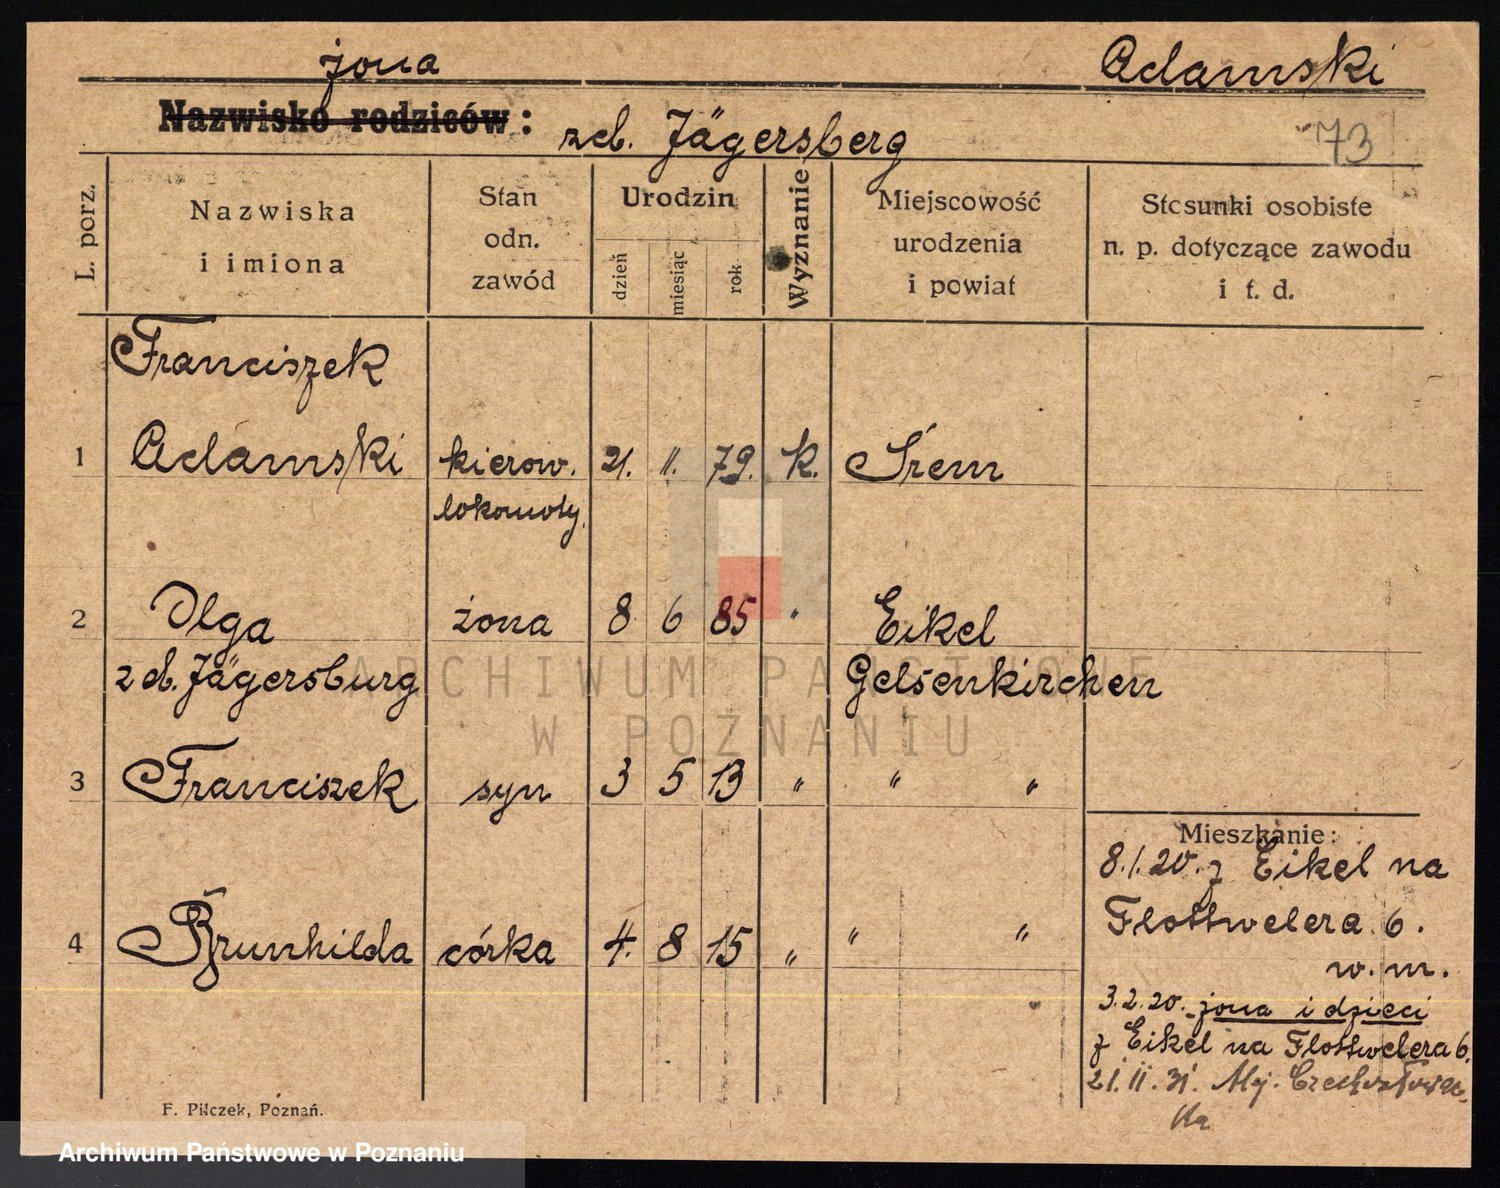 żona Adamski
Nazwisko rodziców: zd. Jägersberg
73
L. porz.
Nazwiska
i imiona
Stan
odn.
zawód
Urodzin
dzień
miesiąc
rok
Wyznanie
Miejscowość
urodzenia
i powiat
Stosunki osobiste
n. p. dotyczące zawodu
i t. d.
Franciszek
1 Adamski kierow. 21. 11. 79. k. Śrem
lokomoty.
2 Olga żona 8 6 85 " Eikel
zd. Jägersburg Gelsenkirchen
3 Franciszek syn 3 5 13 " " "
4 Brunhilda córka 4. 8 15 " " "
Mieszkanie:
8.1.20. z Eikel na
Flottwelera 6.
w. m.
3.2.20. żona i dzieci
z Eikel na Flottwelera 6.
21. II. 31. Alej.
F. Pilczek, Poznań.
ARCHIWUM PAŃSTWOWE
W POZNANIU
Archiwum Państwowe w Poznaniu